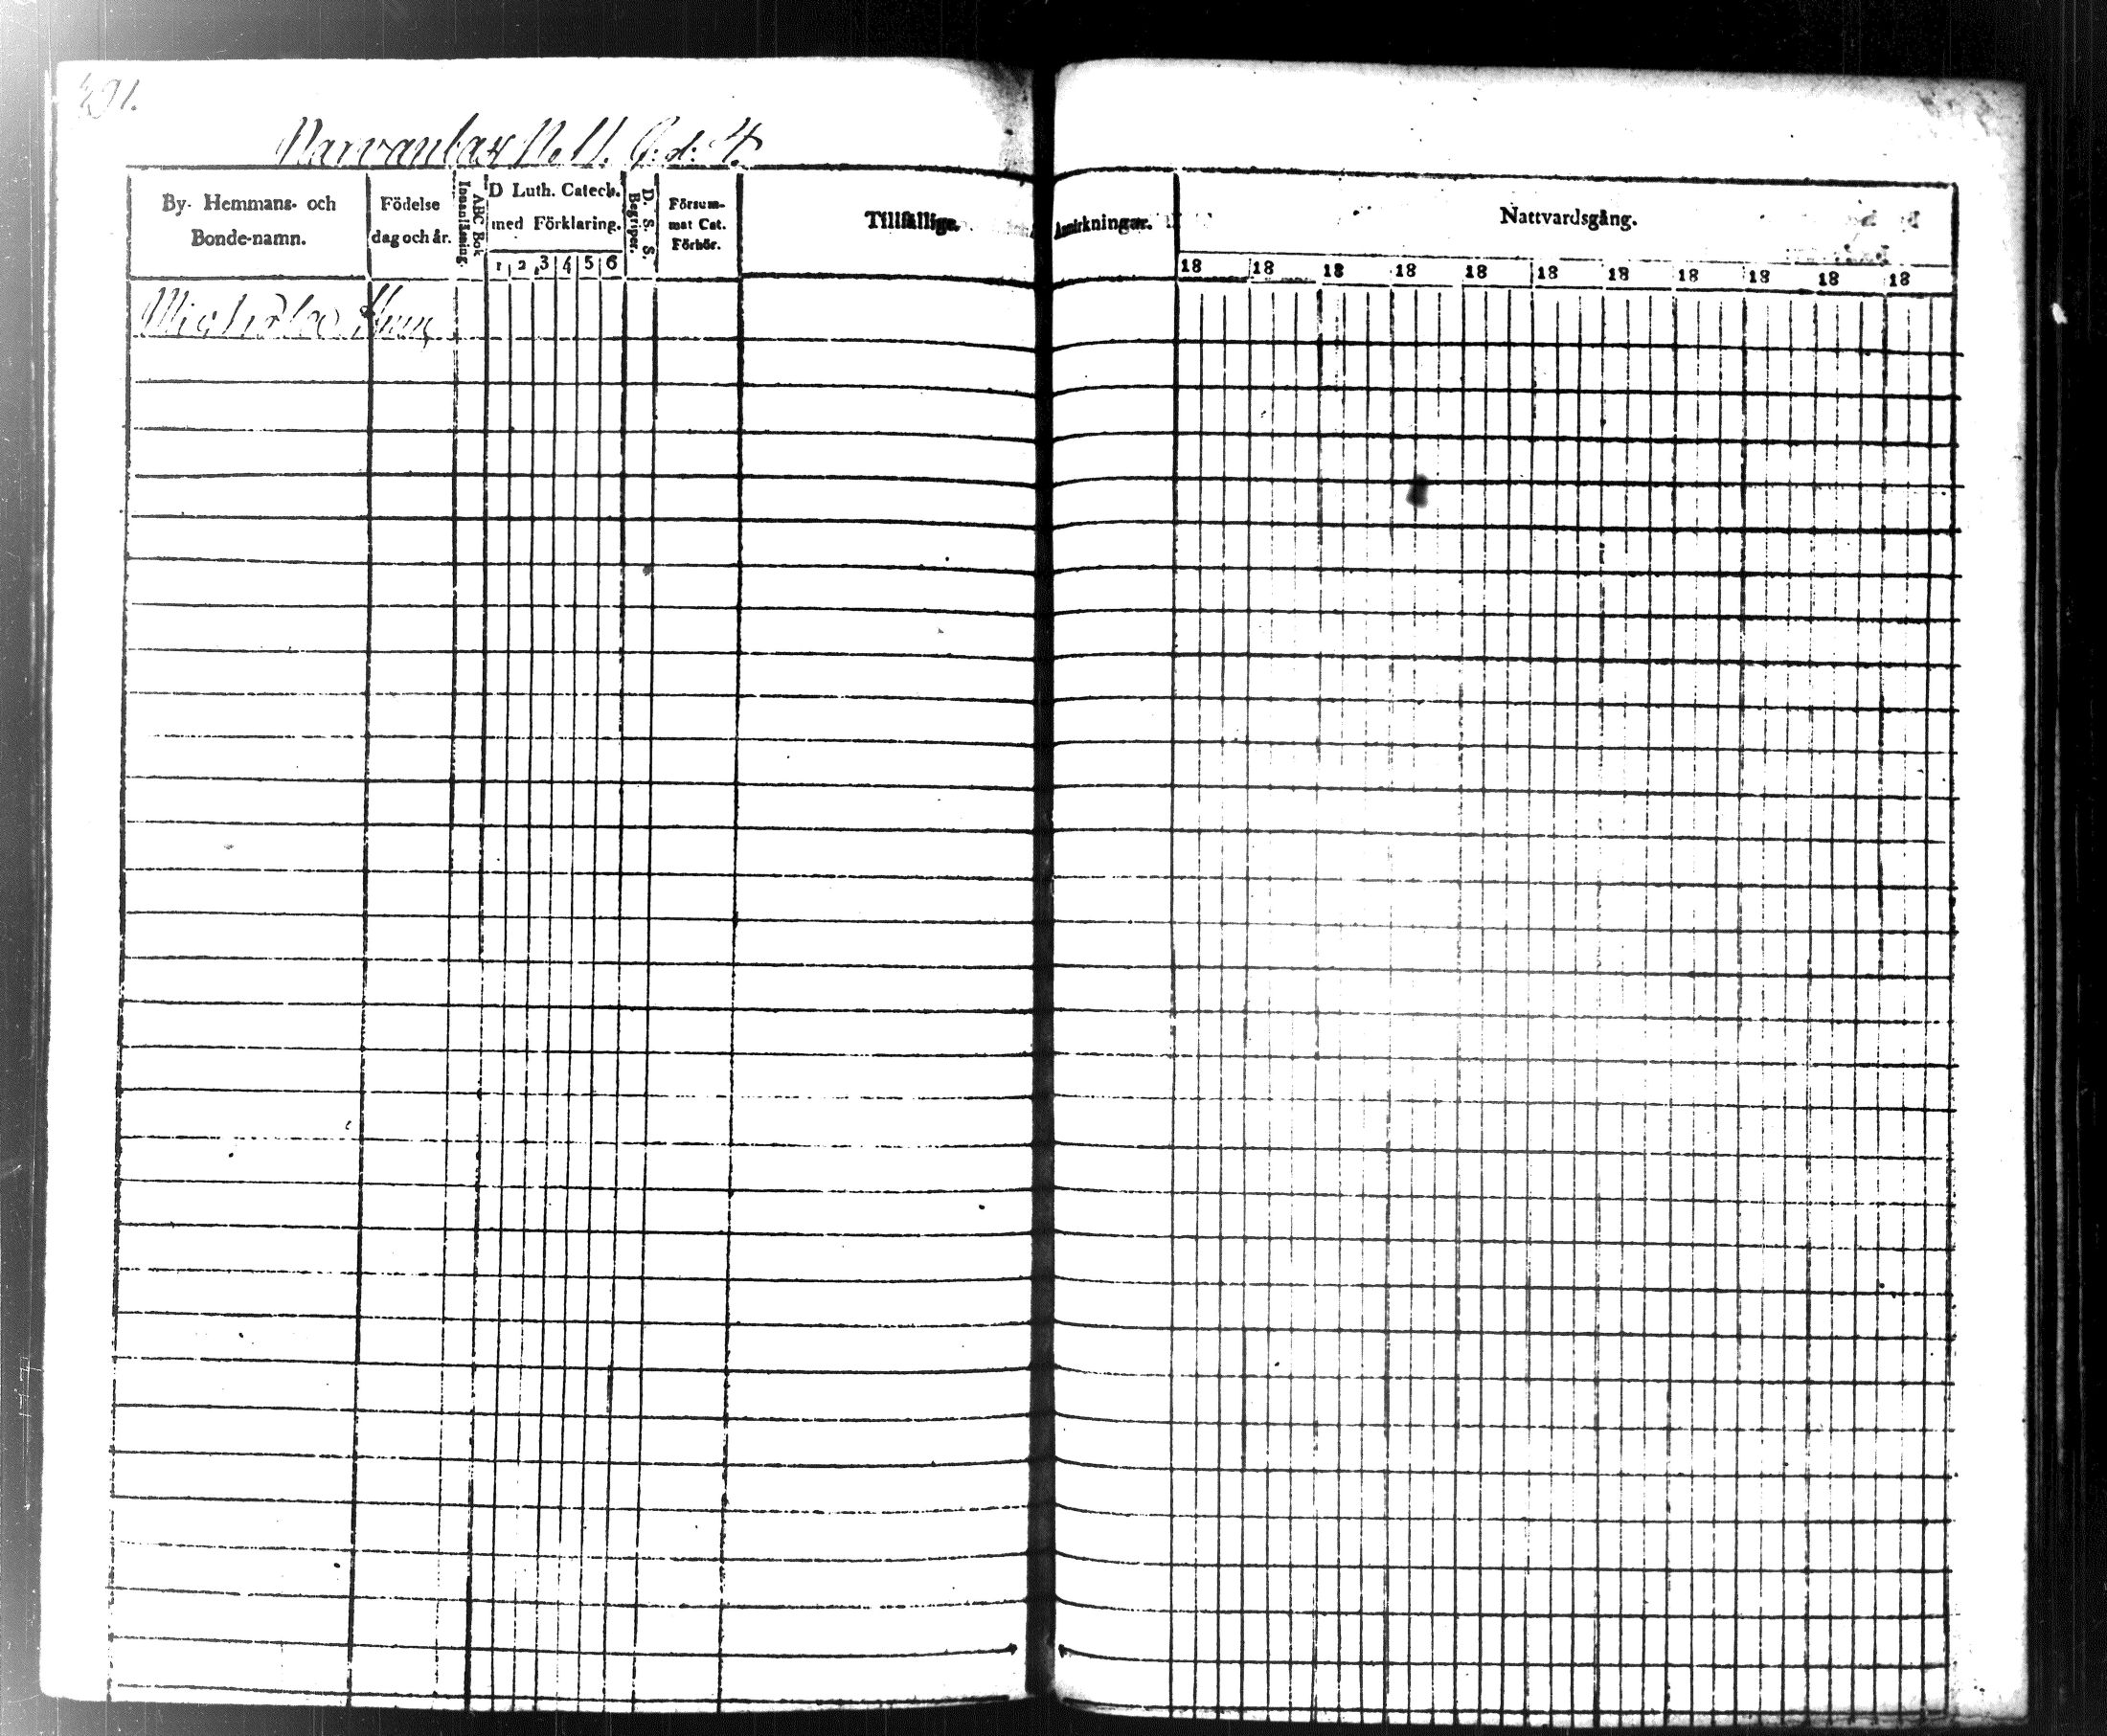 291.
Narvanlax N. 11. G. d. 4.
By- Hemmans- och Bonde-namn.
Födelse dag och år.
Innanläsning.
ABC Bok.
D Luth. Catech. med Förklaring.
1 2 3 4 5 6
D. S. S. Begriper.
Försummat Cat. Förhör.
Tillfällige
Anmärkningar.
Nattvardsgång.
18 18 18 18 18 18 18 18 18 18 18